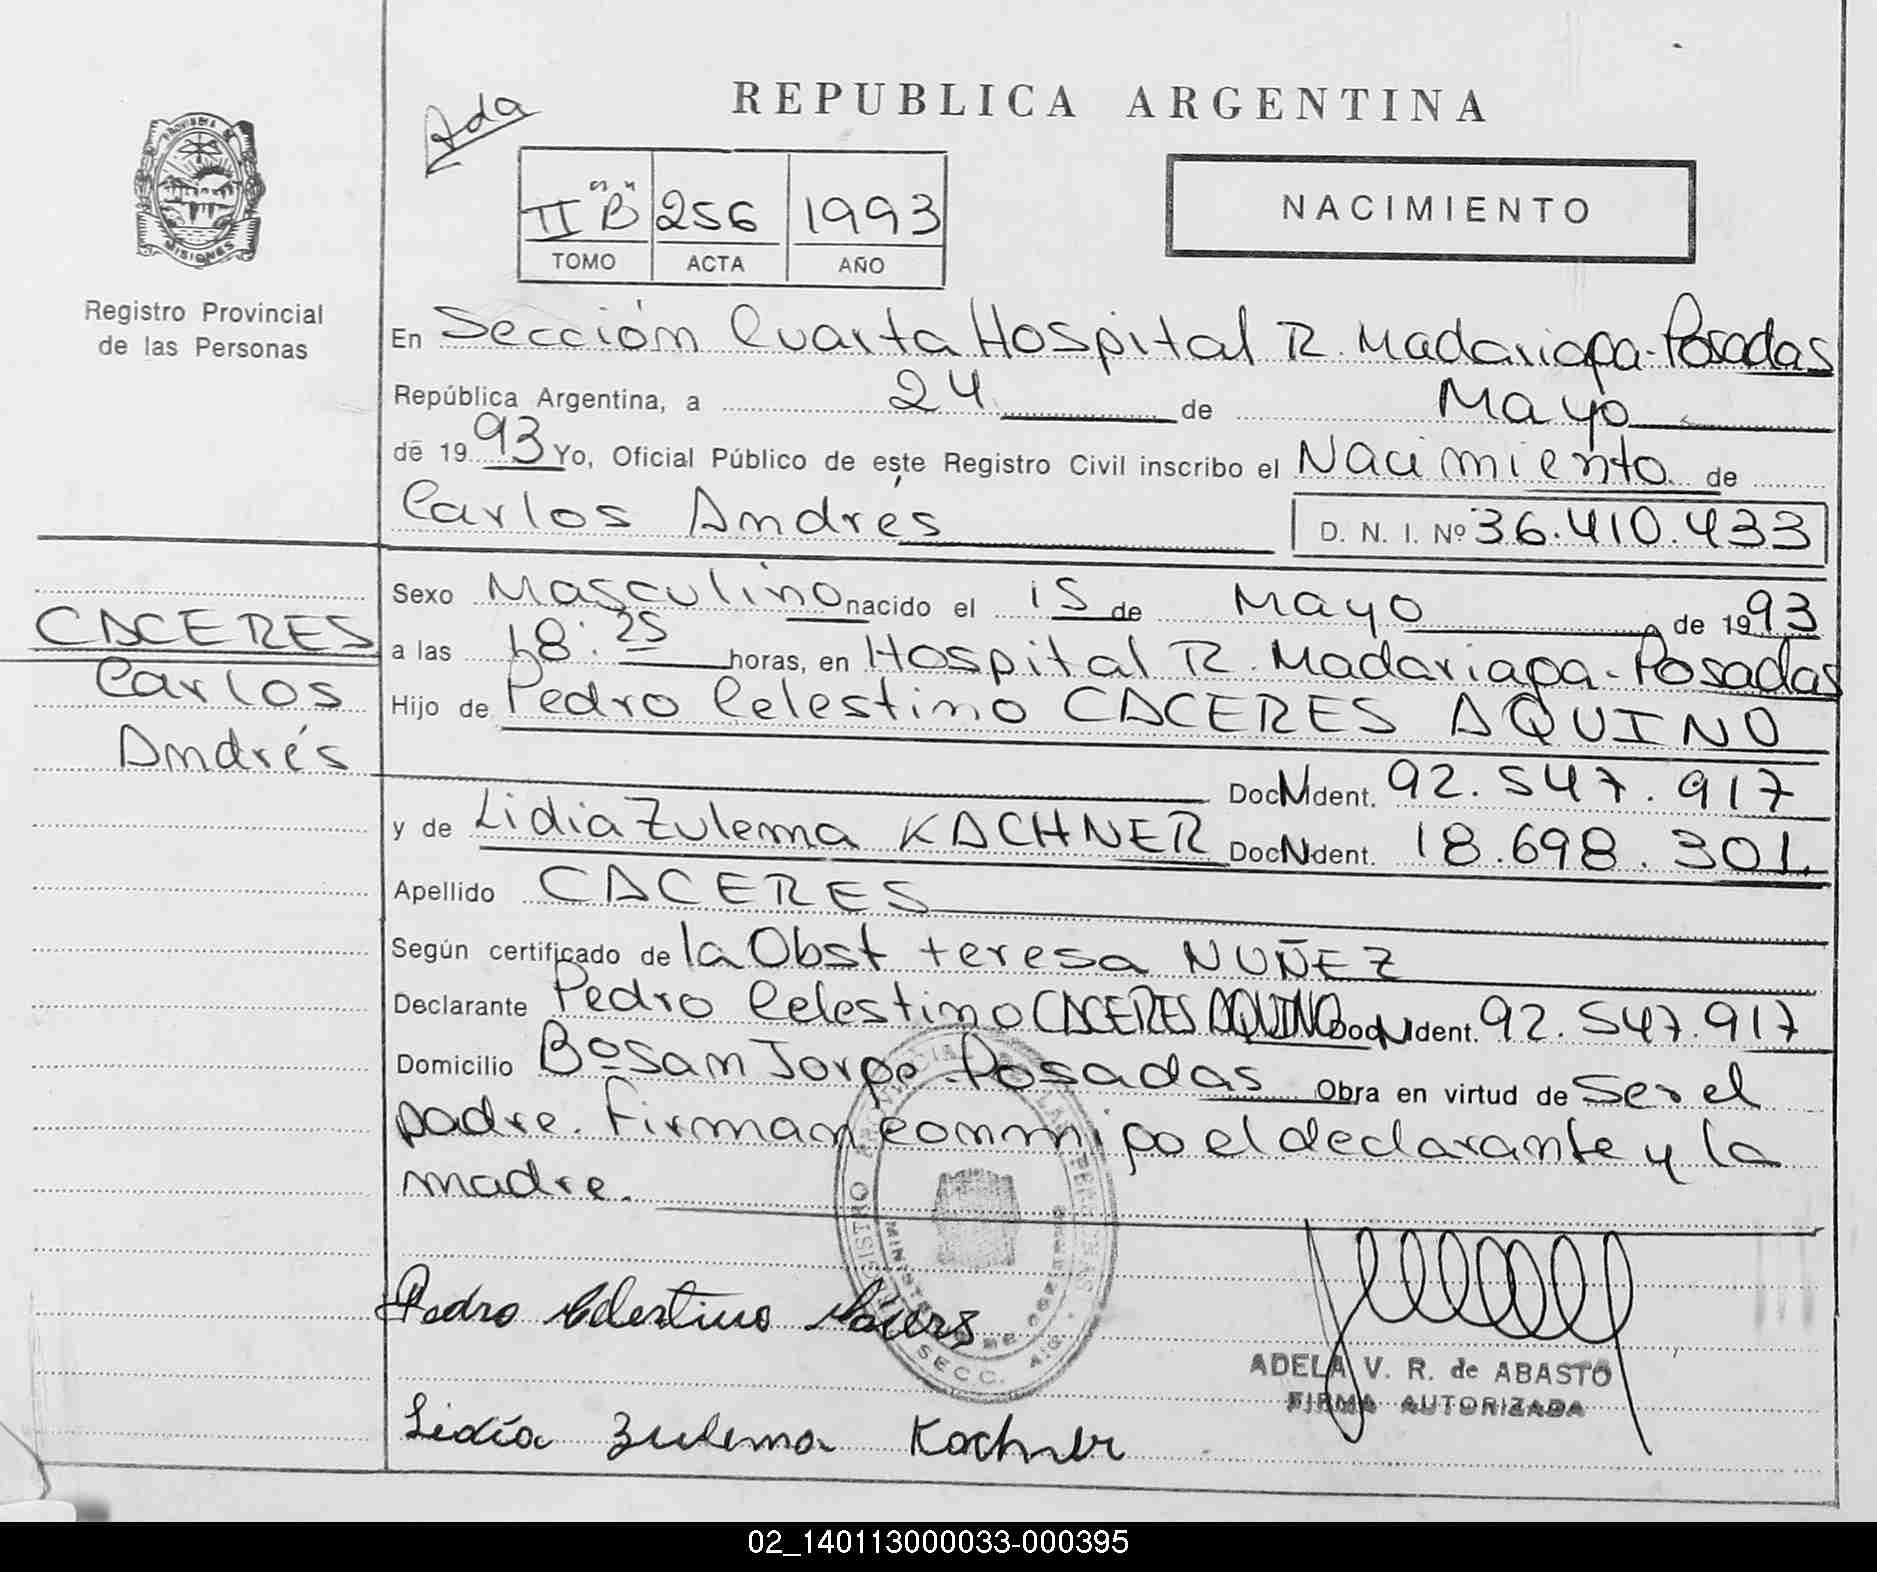 REPUBLICA ARGENTINA
Ada
PROVINCIA DE MISIONES
Registro Provincial
de las Personas
II "B" 256 1993
TOMO ACTA AÑO
NACIMIENTO
En Sección Cuarta Hospital R. Madariaga-Posadas
República Argentina, a 24 de Mayo
de 1993 Yo, Oficial Público de este Registro Civil inscribo el Nacimiento de
Carlos Andrés D. N. I. Nº 36.410.433
CACERES
Carlos
Andrés
Sexo Masculino nacido el 15 de Mayo de 1993
a las 18:25 horas, en Hospital R. Madariaga-Posadas
Hijo de Pedro Celestino CACERES AQUINO
Doc N Ident. 92.547.917
y de Lidia Zulema KACHNER Doc N Ident. 18.698.301
Apellido CACERES
Según certificado de la Obst teresa NUÑEZ
Declarante Pedro Celestino CACERES AQUINO Doc N Ident. 92.547.917
Domicilio Bº San Jorge Posadas Obra en virtud de Ser el
padre. Firman conmigo el declarante y la
madre.
Pedro Celestino Cáceres
ADELA V. R. de ABASTO
FIRMA AUTORIZADA
Lidia Zulema Kachner
02_140113000033-000395